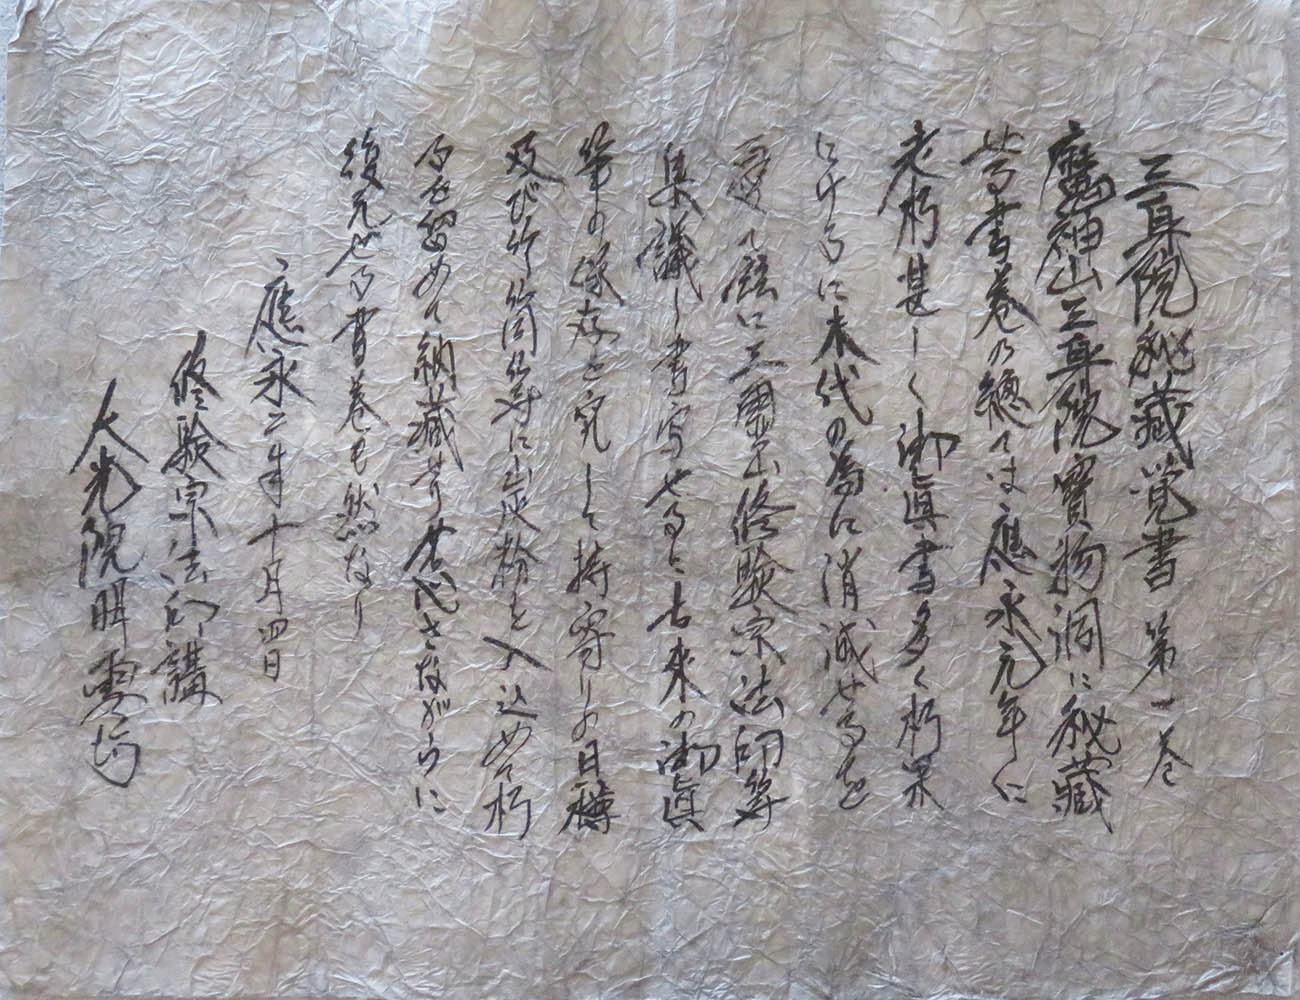 三身院秘藏覚書 第一巻
魔神山三身院寳物洞に秘藏
せる書巻の總ては應永元年に
老朽甚しく御眞書多く朽果
にけるに末代の為に消滅せるを
憂て茲に三璽山修験宗法印等
集議し書写せると古来の御眞
筆の保存を究して持寄りの日樽
及び竹筒仏等に山炭粉を入込めて朽
るを留めて納藏せり世代さながらに
復元せる書巻も然なり
應永二年十月四日
修験宗法印講
大光院明雲坊